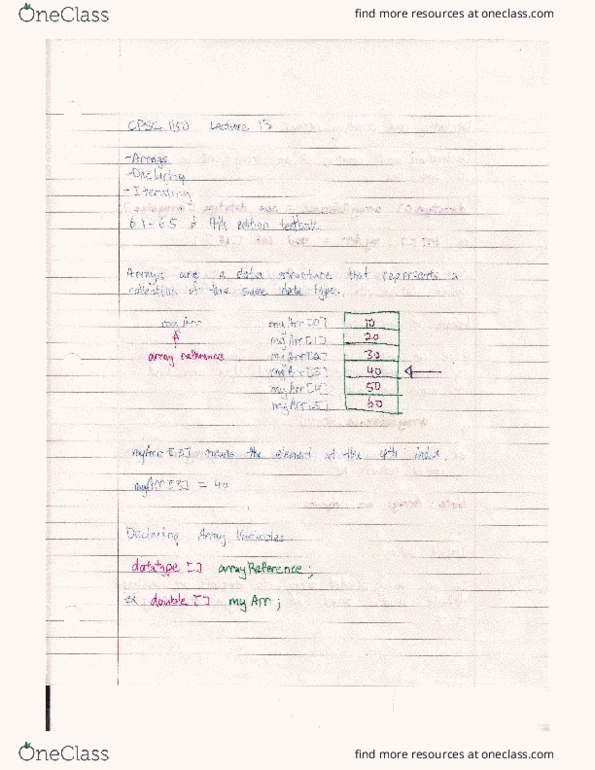 OneClass
find more resources at oneclass.com
CPSC 1150 Lecture 13
-Arrays
-Declaring
-Iterating
6.1-6.5 7th edition textbook
Arrays are a data structure that represents a
collection of the same data types.
myArr
array reference
myArr[0] 10
myArr[1] 20
myArr[2] 30
myArr[3] 40
myArr[4] 50
myArr[5] 60
myArr[3] means the element at the 4th index.
myArr[3] = 40
Declaring Array Variables
datatype[] arrayReference;
ex double[] myArr;
OneClass
find more resources at oneclass.com